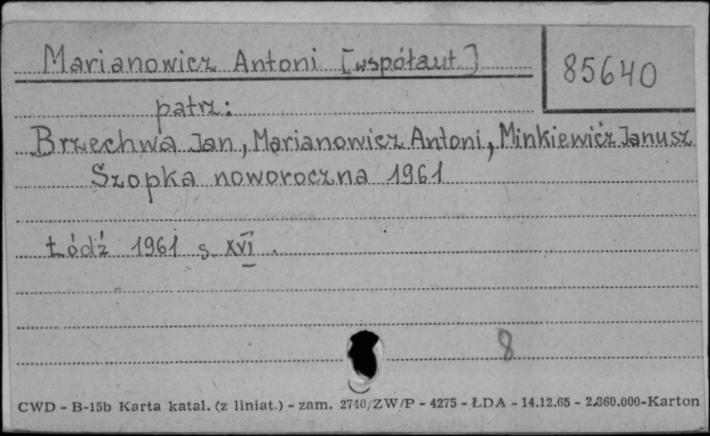 Marianowicz Antoni [współaut.]
85640
patrz:
Brzechwa Jan, Marianowicz Antoni, Minkiewicz Janusz
Szopka noworoczna 1961
Łódź 1961 s. XVI .
8
CWD - B-15b Karta katal. (z liniat.) - zam. 2740/ZW/P - 4275 - ŁDA - 14.12.65 - 2.860.000-Karton